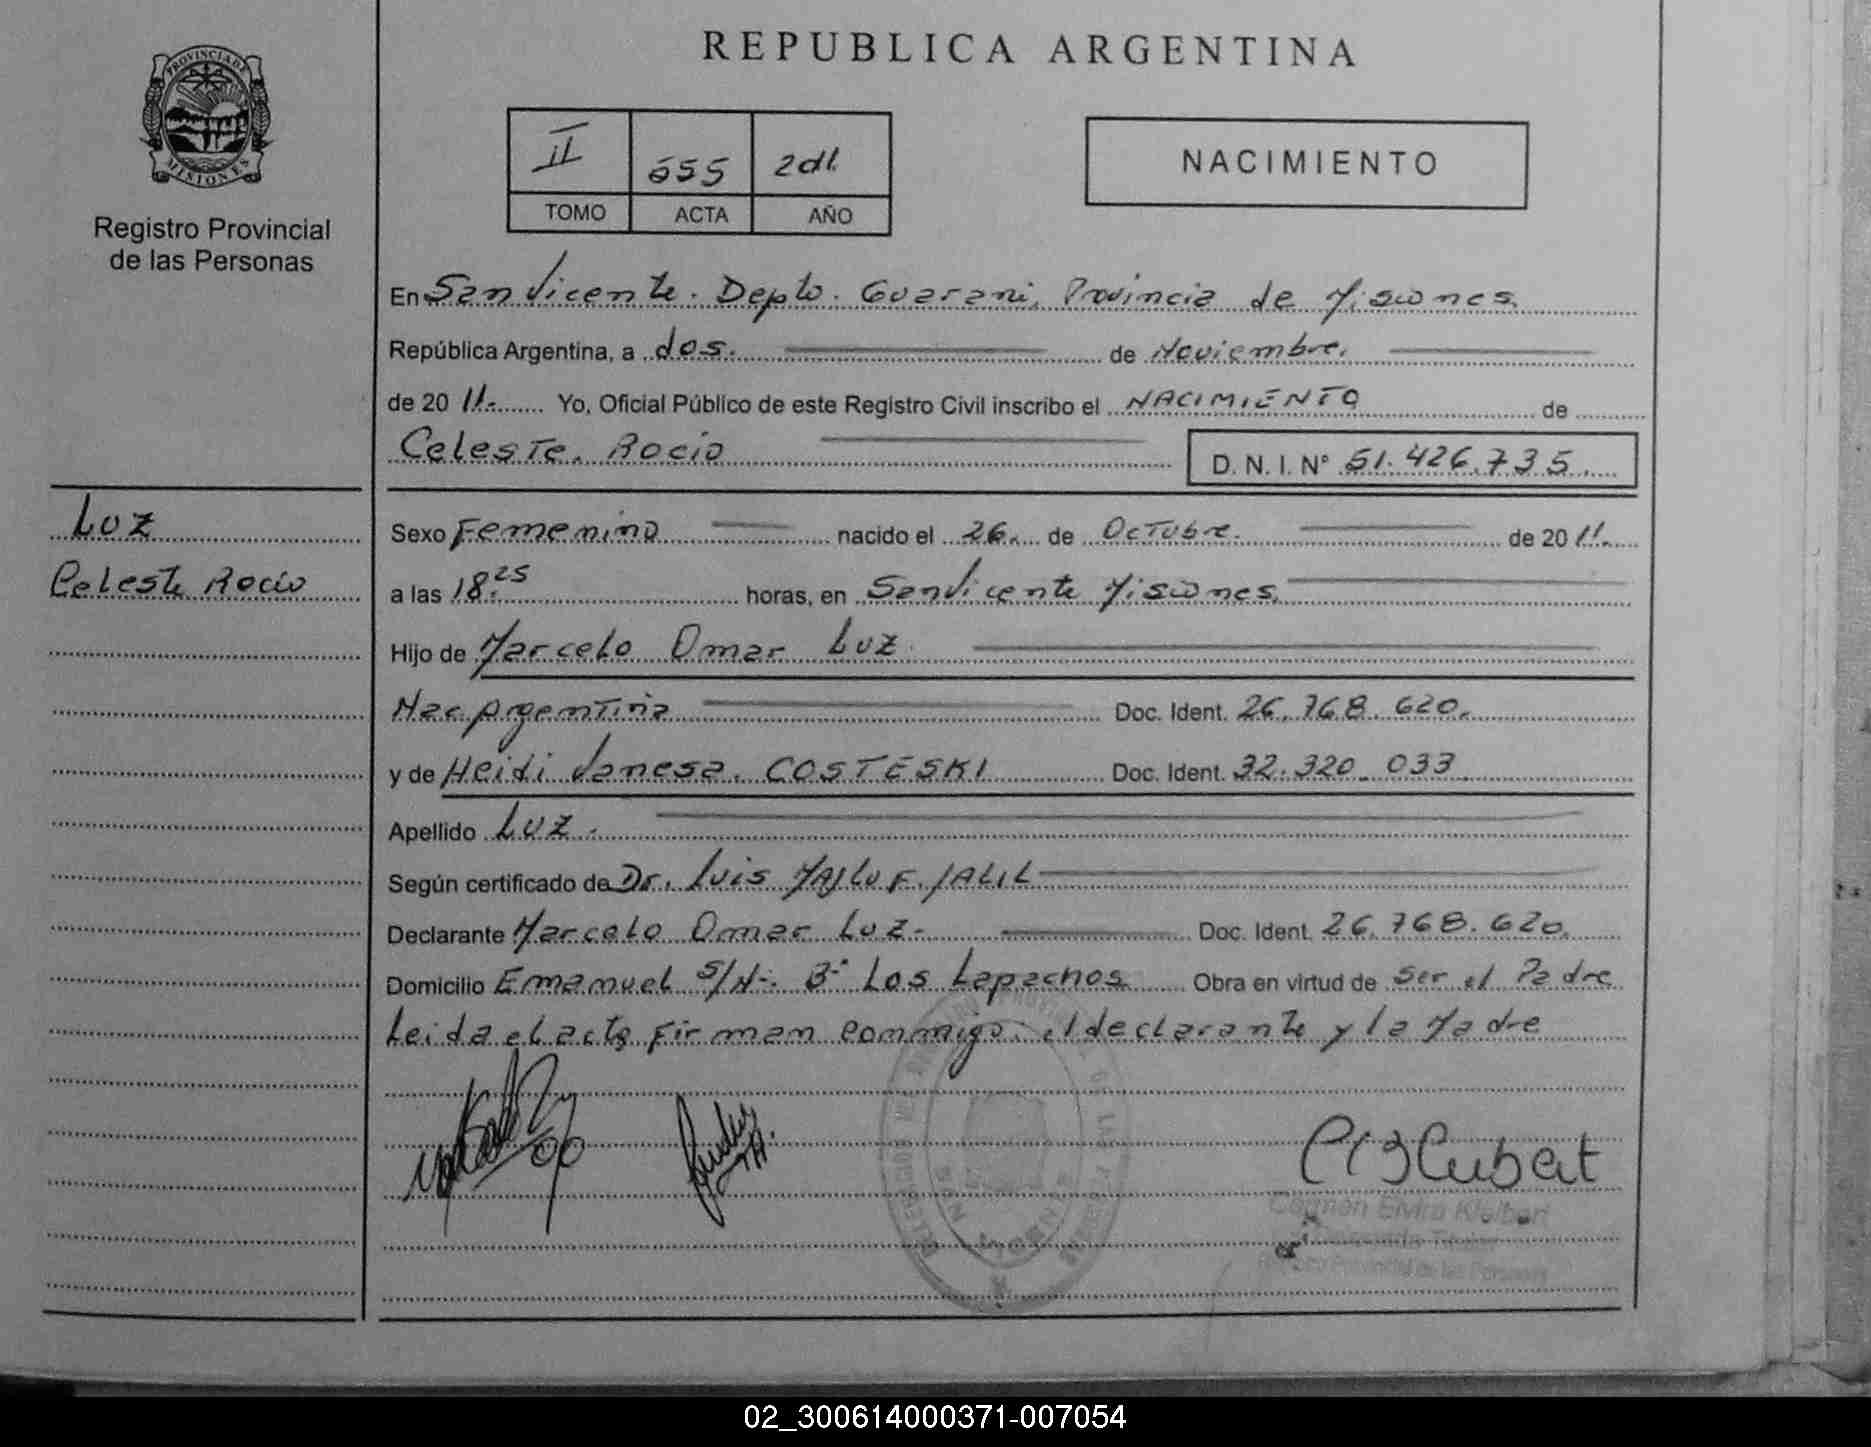 REPUBLICA ARGENTINA
PROVINCIA DE
MISIONES
Registro Provincial
de las Personas
II 655 2011
TOMO ACTA AÑO
NACIMIENTO
En San Vicente. Depto. Guarani, Provincia de Misiones.
República Argentina, a dos. de Noviembre.
de 20 11.- Yo, Oficial Público de este Registro Civil inscribo el NACIMIENTO de
Celeste. Rocio D. N. I. N° 51.426.735.
Luz
Celeste Rocio
Sexo Femenino nacido el 26. de Octubre. de 20 11.
a las 18.25 horas, en San Vicente Misiones.
Hijo de Marcelo Omar Luz.
Nac. Argentina Doc. Ident. 26.768.620.
y de Heidi Vanesa. COSTESKI Doc. Ident. 32.320.033
Apellido Luz.
Según certificado de Dr. Luis MAJLUF JALIL
Declarante Marcelo Omar Luz.- Doc. Ident. 26.768.620.
Domicilio Emanuel S/N-. B° Los Lapachos. Obra en virtud de Ser el Padre
Leida el acta Firman conmigo. el declarante y la Madre
02_300614000371-007054